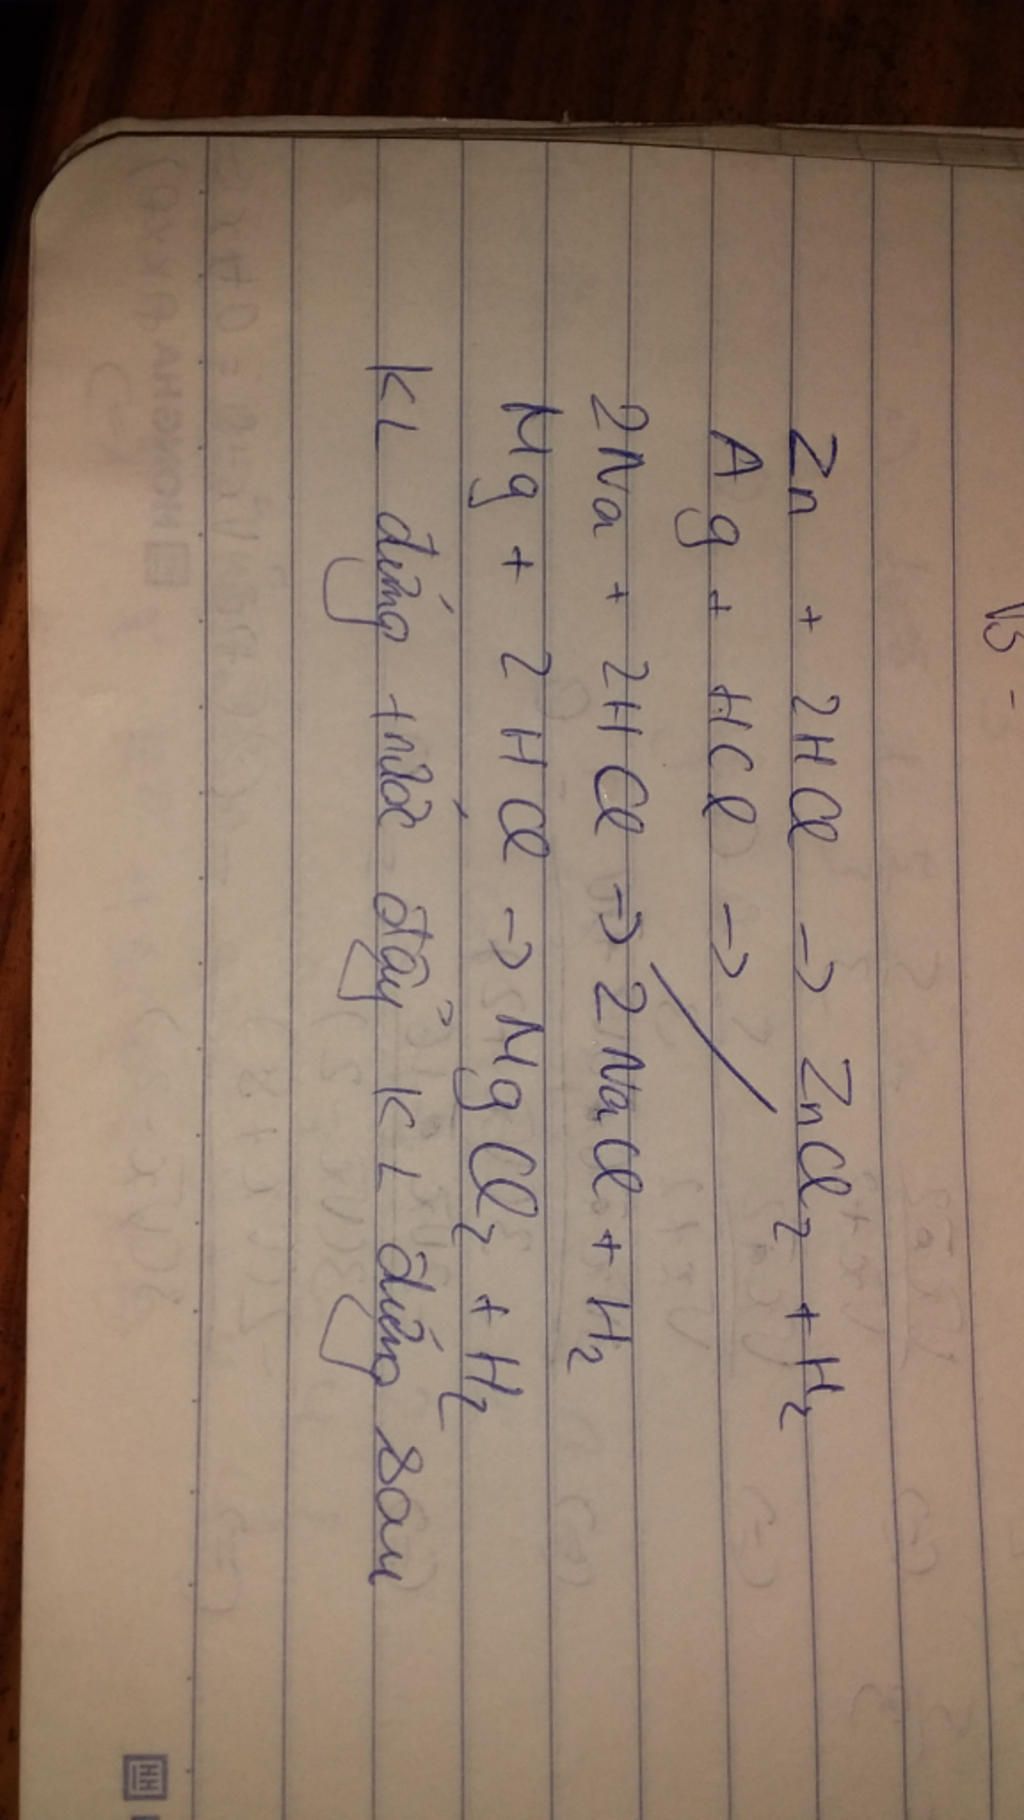 Zn + 2HCl → ZnCl2 + H2
Ag + HCl →
2Na + 2HCl → 2NaCl + H2
Mg + 2HCl → MgCl2 + H2
KL đứng trước đẩy KL đứng sau